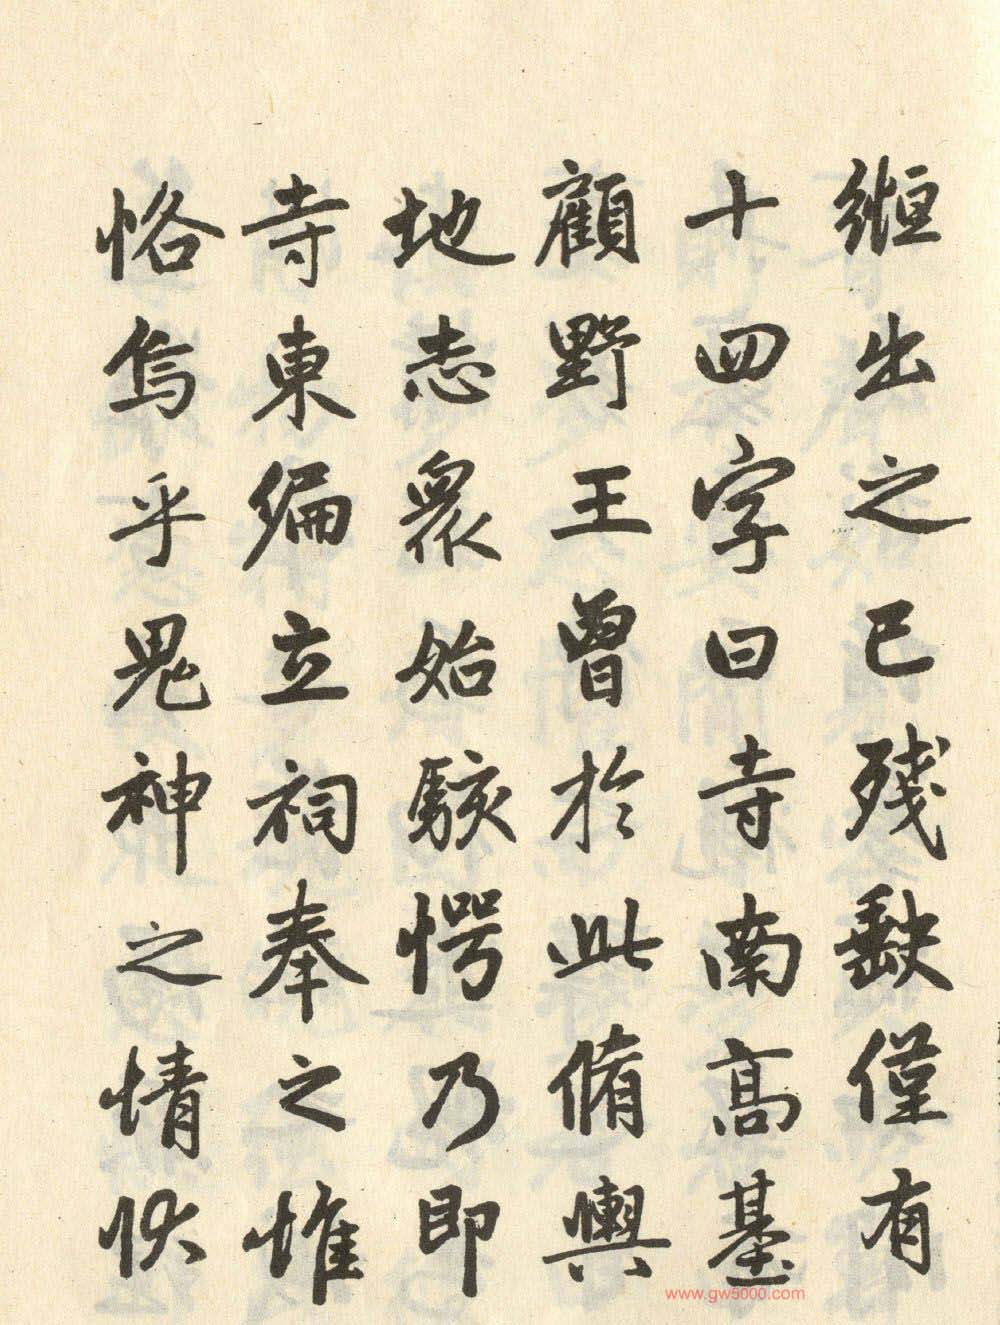 緪出之已殘缺僅有
十四字曰寺南高基
顧野王曾於此脩輿
地志眾始駭愕乃即
寺東偏立祠奉之惟
恪焉乎鬼神之情怢
www.gw5000.com